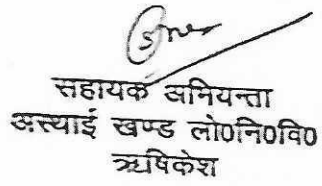 सहायक अभियन्ता
अस्थाई खण्ड लो०नि०वि०
ऋषिकेश